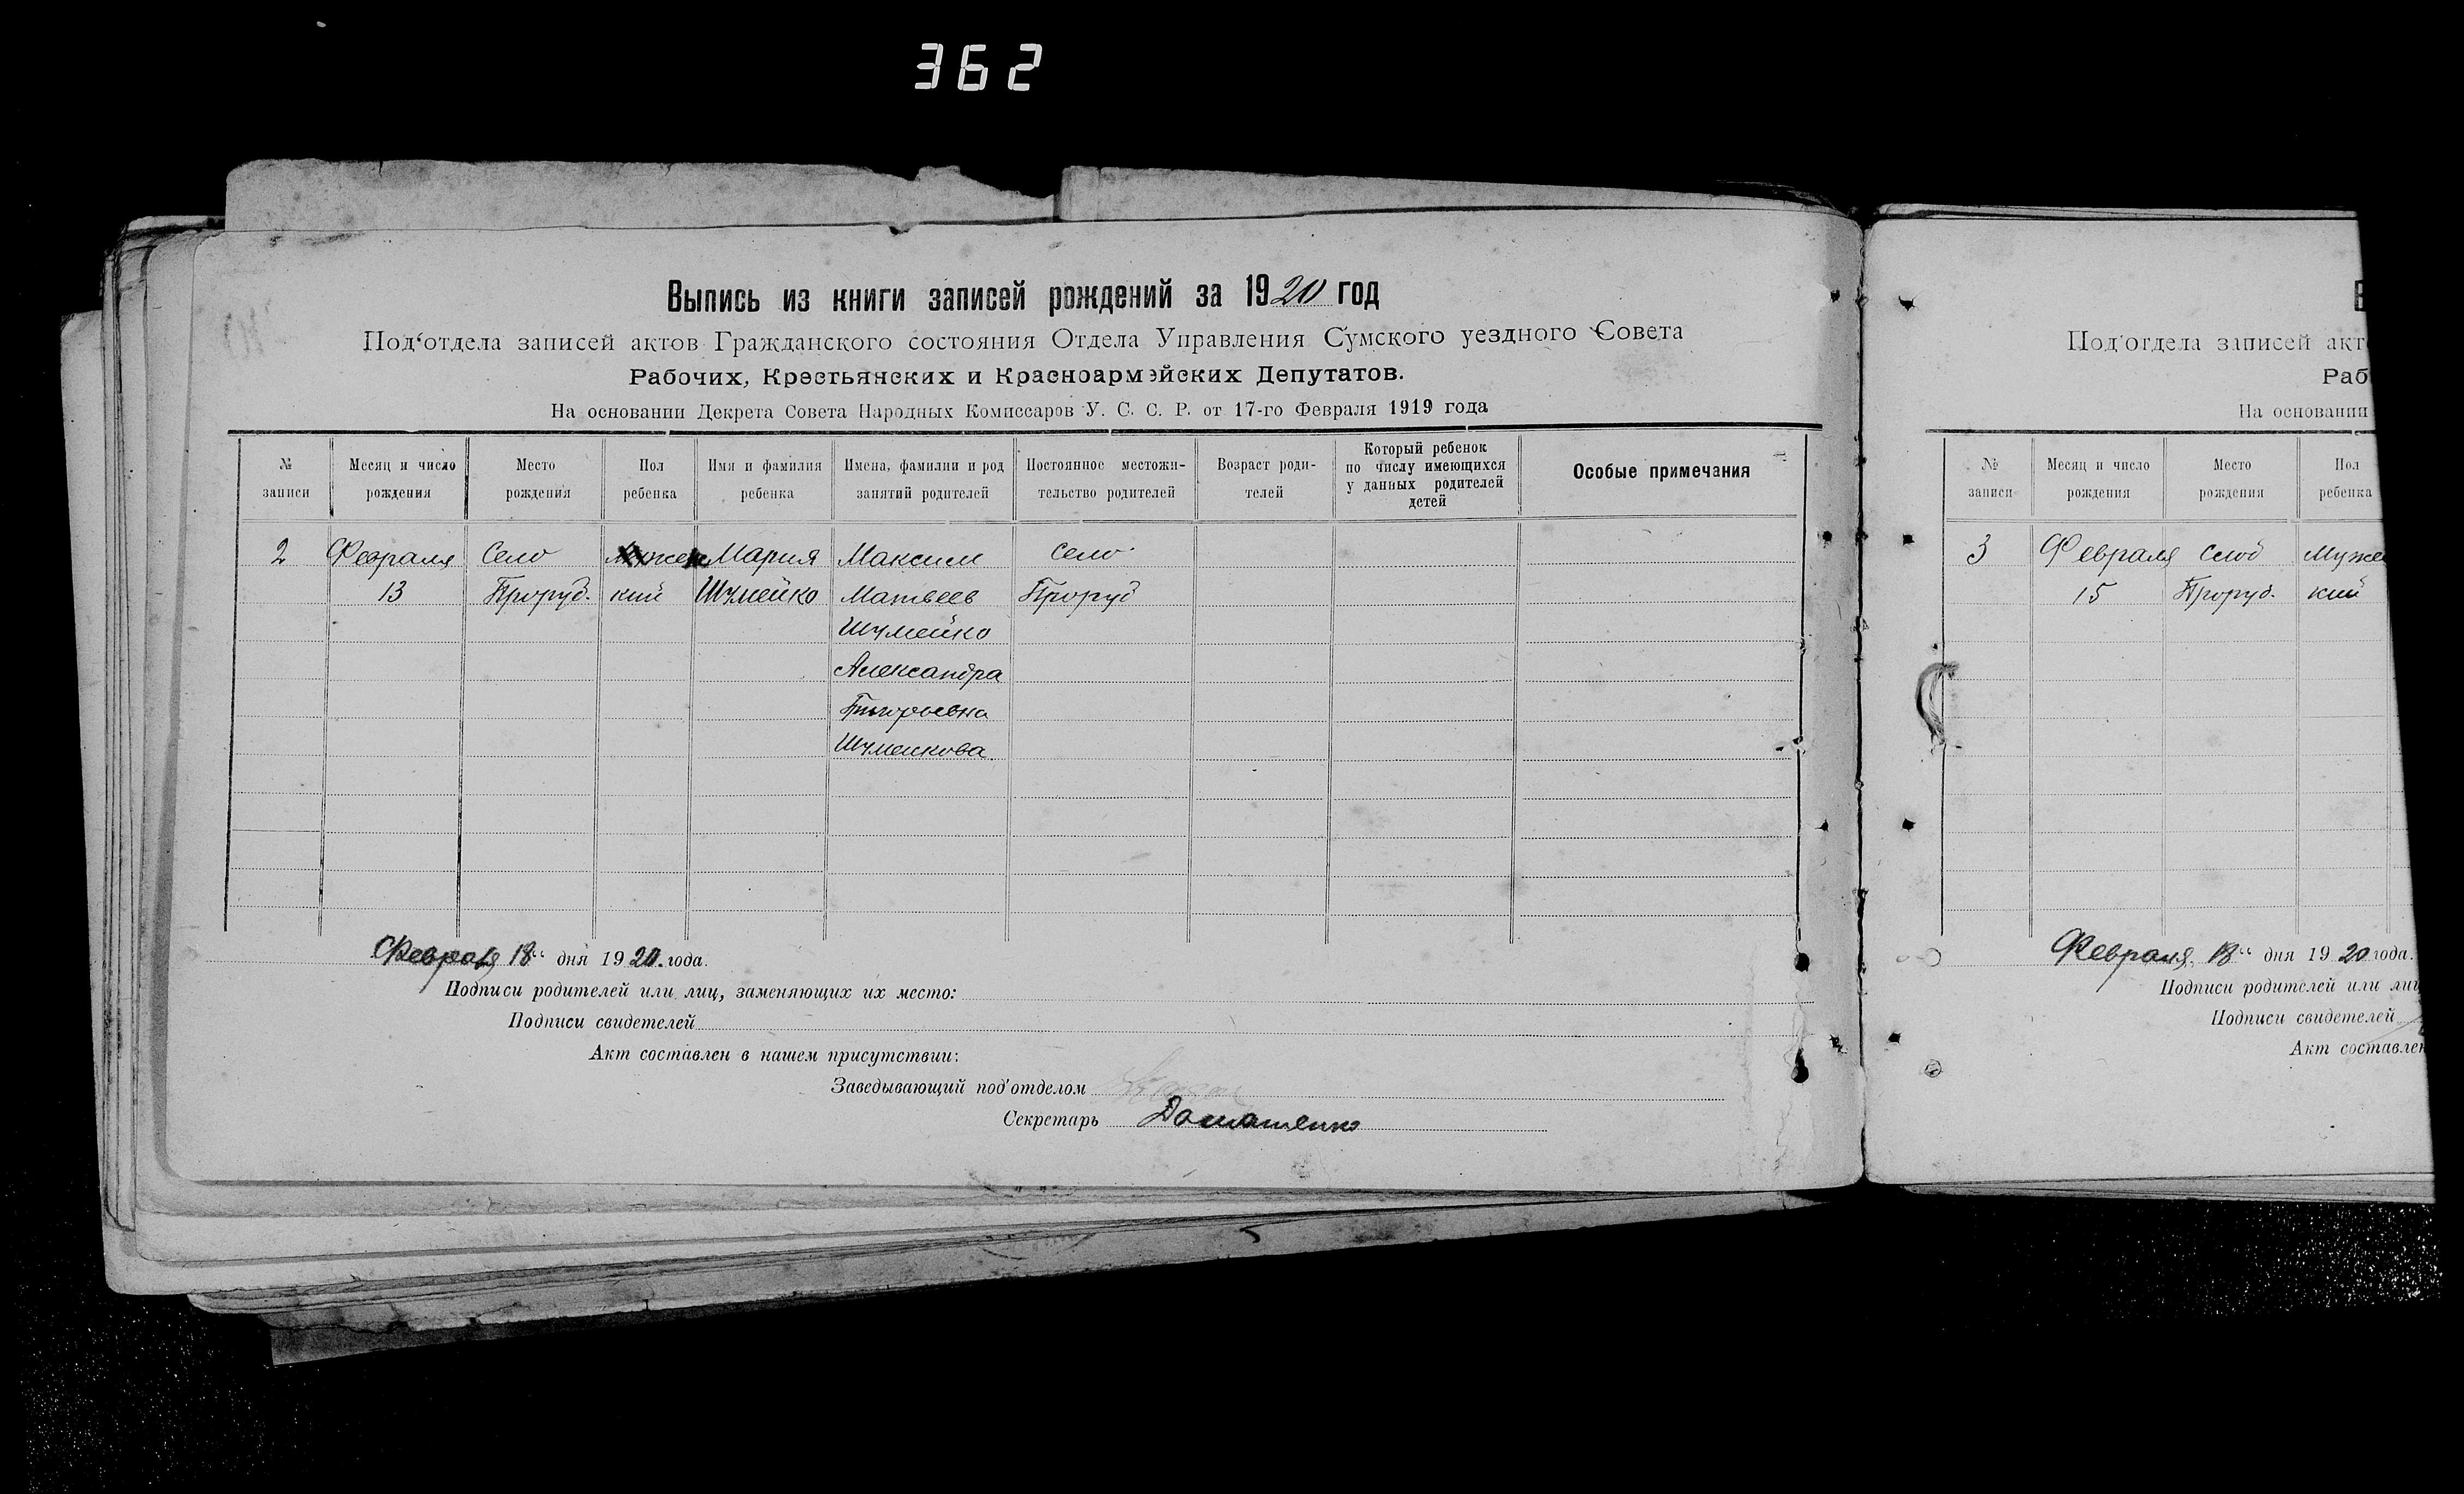 362
Выпись из книги записей рождений за 1920 год
Под'отдела записей актов Гражданского состояния Отдела Управления Сумского уездного Совета
Рабочих, Крестьянских и Красноармейских Депутатов.
На основании Декрета Совета Народных Комиссаров У. С. С. Р. от 17-го Февраля 1919 года
№ записи
Месяц и число рождения
Место рождения
Пол ребенка
Имя и фамилия ребенка
Имена, фамилии и род занятий родителей
Постоянное местожительство родителей
Возраст родителей
Который ребенок по числу имеющихся у данных родителей детей
Особые примечания
2 Февраля Село Мария Максим село
13 Проруб. кий Шумейко Матвеев Проруб
Шумейко
Александра
Григорьевна
Шумейкова.
Февраля 18" дня 1920. года.
Подписи родителей или лиц, заменяющих их место:
Подписи свидетелей
Акт составлен в нашем присутствии:
Заведывающий под'отделом
Секретарь Доматенко
В
Под'отдела записей акт
Раб
На основании
№ записи
Месяц и число рождения
Место рождения
Пол ребенка
3 Февраля Муже
15 Проруб. кий
Февраля 18" дня 1920 года.
Подписи родителей или лиц
Подписи свидетелей
Акт составлен